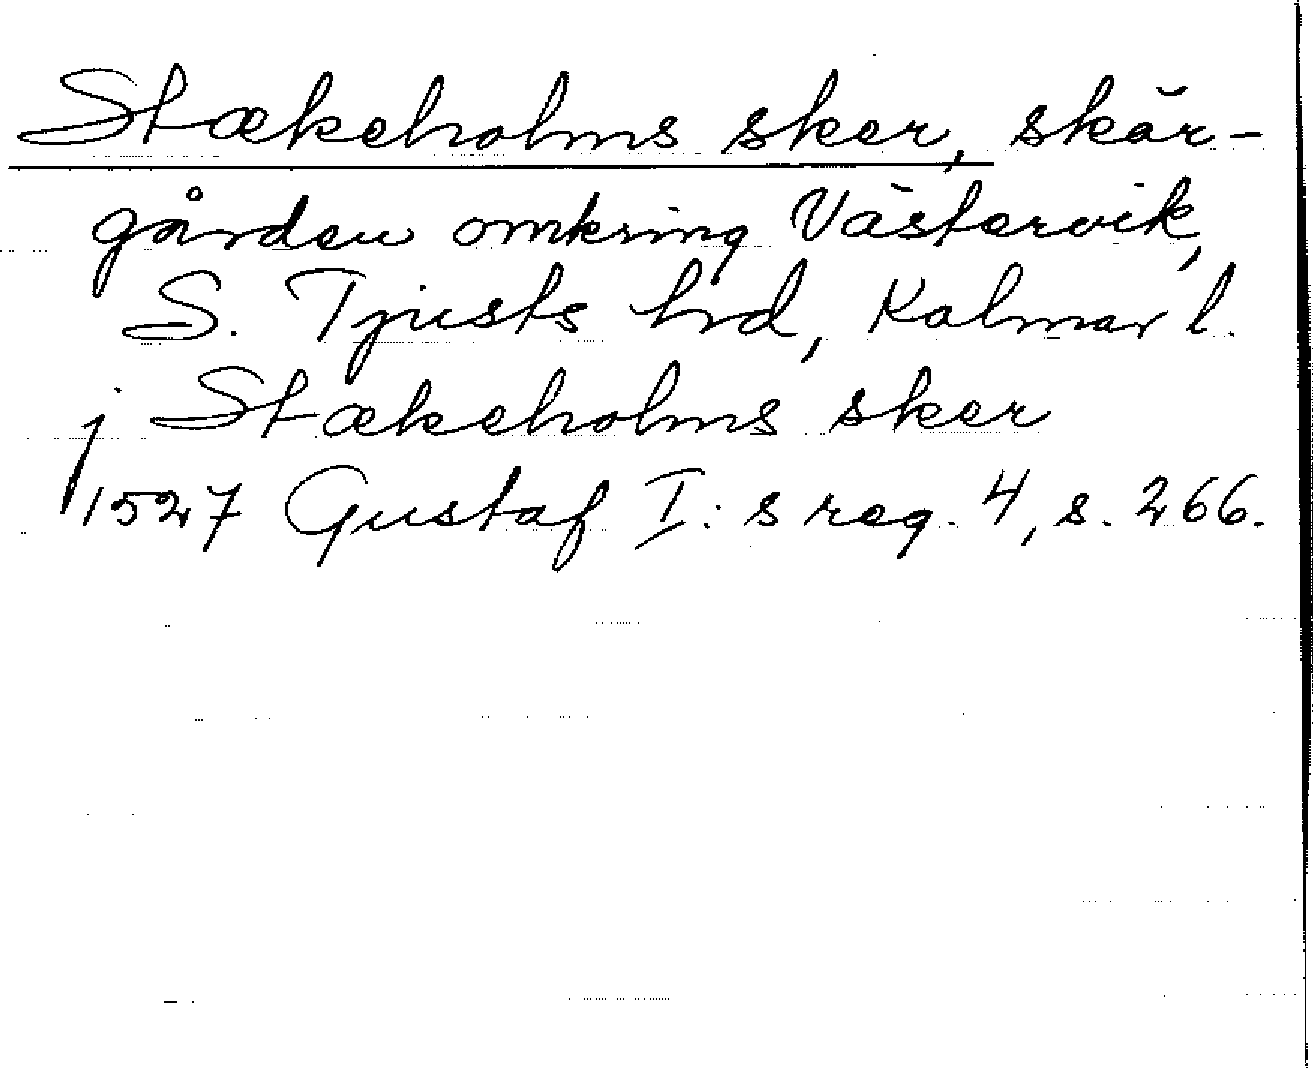 Stækeholms sker, skär-
gården omkring Västervik,
S. Tjusts hrd, Kalmar l.
j Stækeholms sker
1527 Gustaf I:s reg. 4, s. 266.